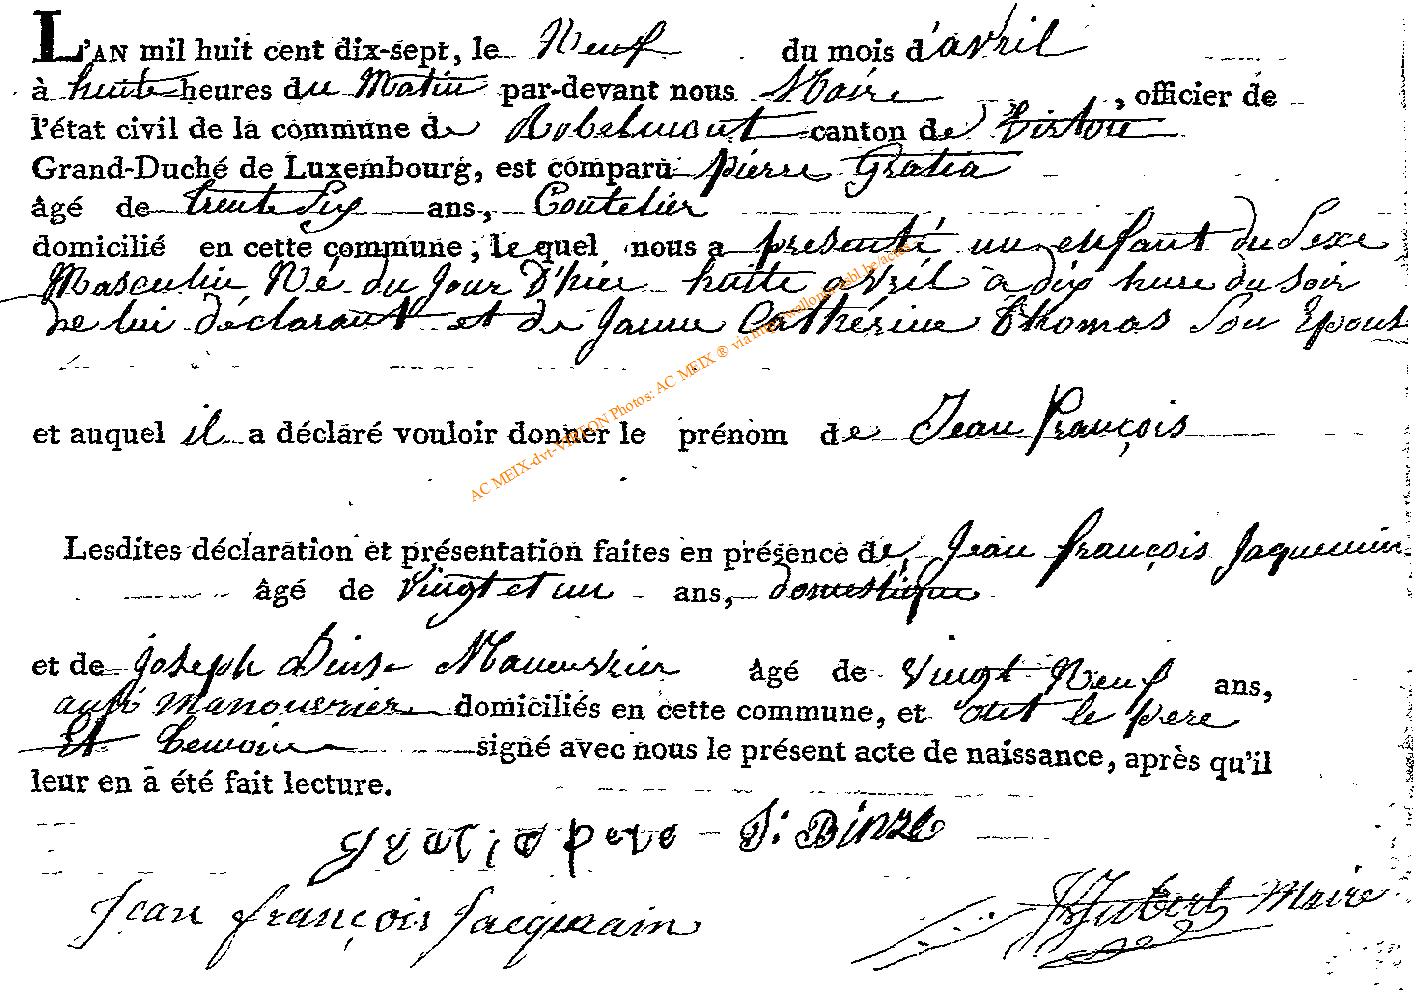 L'AN mil huit cent dix-sept, le Neuf du mois d'avril
à huite heures du Matin par-devant nous Maire , officier de
l'état civil de la commune de Robelmont canton de Virton
Grand-Duché de Luxembourg, est comparu pierre Gratia
âgé de trente Six ans, Coutelier
domicilié en cette commune, lequel nous a presenté un enfant du Sexe
Masculin Né du Jour D'hier huitte avril à dix hure du Soir
ne lui déclarant et de Janne Cathérine Thomas Son Epouse
et auquel il a déclaré vouloir donner le prénom de Jean François
Lesdites déclaration et présentation faites en présence de Jean françois Jaquemin
âgé de vingt et un ans, domestique
et de Joseph Binse Manuvrier âgé de vingt Neuf ans,
ausi manouvrier domiciliés en cette commune, et ont le pere
Et temoin signé avec nous le présent acte de naissance, après qu'il
leur en a été fait lecture.
gratia pere J: Binze
Jean françois Jacquemin
Hubert Maire
AC MEIX-dvt-VIRTON Photos: AC MEIX ® via